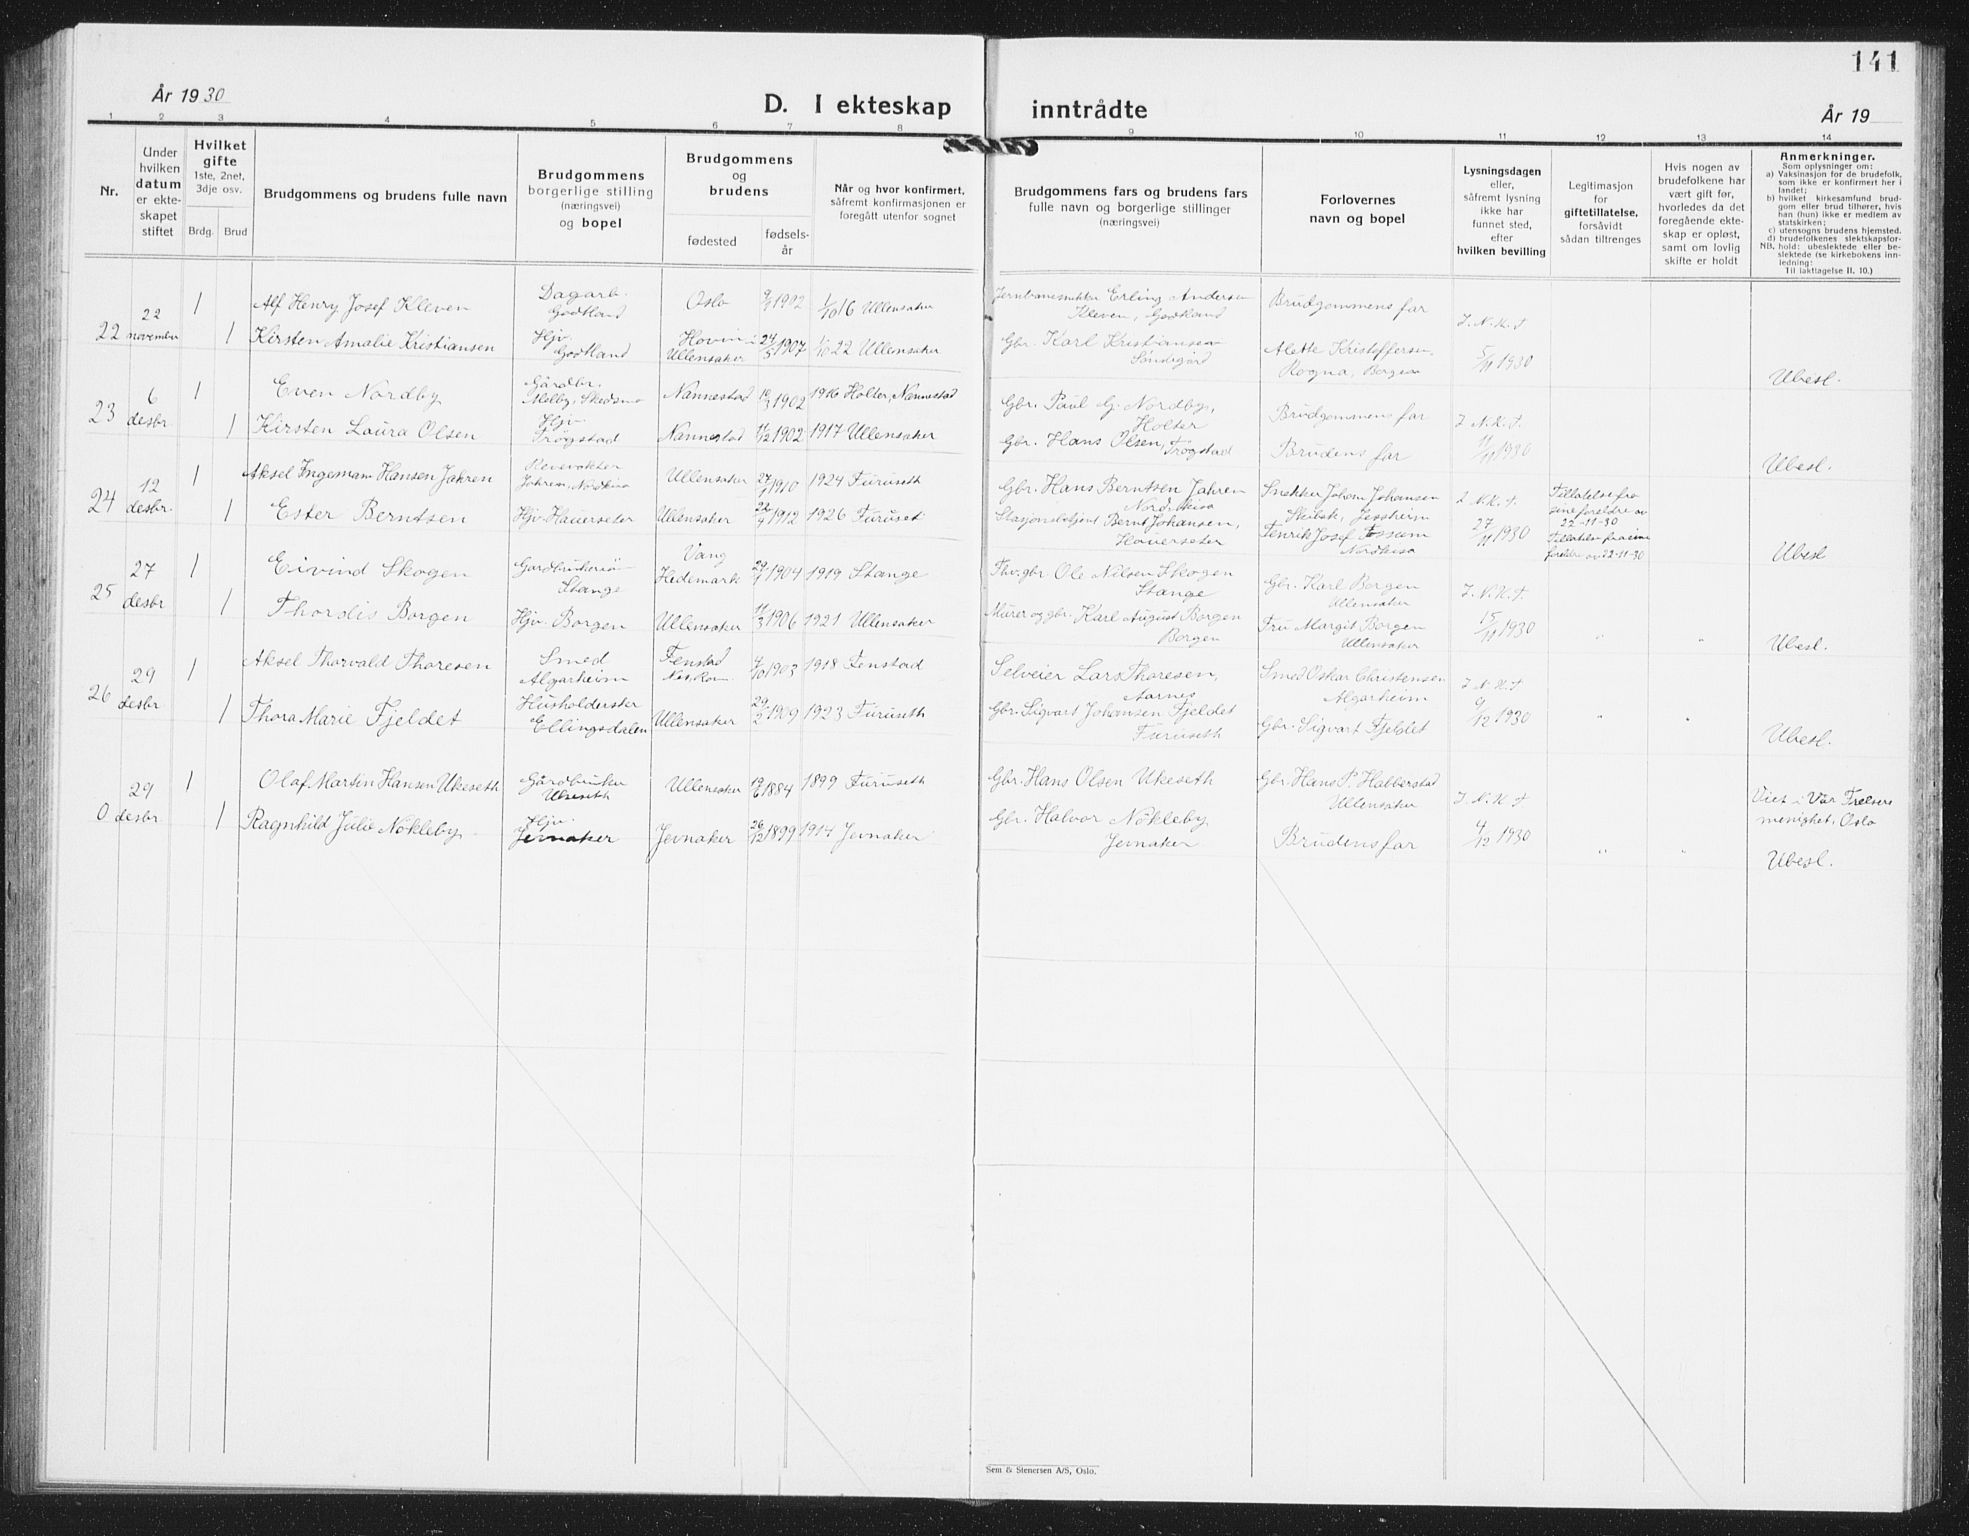 141
År 1930
D. I ekteskap inntrådte
År 19
1 2 3 4 5 6 7 8 9 10 11 12 13 14
Nr.
Under hvilken datum er ekteskapet stiftet
Hvilket gifte
1ste, 2net, 3dje osv.
Brdg. Brud
Brudgommens og brudens fulle navn
Brudgommens borgerlige stilling (næringsvei) og bopel
Brudgommens og brudens
fødested
fødselsår
Når og hvor konfirmert, såfremt konfirmasjonen er foregått utenfor sognet
Brudgommens fars og brudens fars fulle navn og borgerlige stillinger (næringsvei)
Forlovernes navn og bopel
Lysningsdagen eller, såfremt lysning ikke har funnet sted, efter hvilken bevilling
Legitimasjon for giftetillatelse, forsåvidt sådan tiltrenges
Hvis nogen av brudefolkene har vært gift før, hvorledes da det foregående ekteskap er opløst, samt om lovlig skifte er holdt
Anmerkninger.
Som oplysninger om:
a) Vaksinasjon for de brudefolk, som ikke er konfirmert her i landet;
b) hvilket kirkesamfund brudgom eller brud tilhører, hvis han (hun) ikke er medlem av statskirken;
c) utensogns brudens hjemsted.
d) brudefolkenes slektskapsforhold: ubeslektede eller beslektede (se kirkebokens innledning:
NB. Til iakttagelse II. 10.)
22
22 november
1 Alf Henry Josef Kleven
Dagarb. Godkland
Oslo 9/9 1902 1/10 16 Ullensaker
Erling Andersen Kleven, Godkland
Brudgommens far
I. N. K. T
5/11 1930
1 Kirsten Amalie Kristiansen
Hjv. Godkland
Hovin i Ullensaker 24/5 1907 1/10 22 Ullensaker
Gbr. Karl Kristiansen Søndregård
Alette Kristoffersen, Rogna, Borgen
Ubesl.
23
6 desbr
1 Even Nordby
Gårdbr. Skedsmo
Nannestad 1902 1916 Holter, Nannestad
Gbr. Paul G. Nordby, Holter
Brudgommens far
I. N. K. T.
11/11 1930
1 Kirsten Laura Olsen
Hjv. Trøgstad
Nannestad 11/12 1902 1917 Ullensaker
Gbr. Hans Olsen, Trøgstad
Brudens far
Ubesl.
24
12 desbr.
1 Aksel Ingemann Hansen Jahren
Jahren, Nordkisa
Ullensaker 1910 1924 Furuseth
Gbr. Hans Berntsen Jahren Nordkisa
Snekker Johan Johansen Skibak, Jessheim
I. N. K. T.
27/11 1930
Tillatelse fra sine foreldre av 22-11-30
1 Ester Berntsen
Hjv. Hauerseter
Ullensaker 22/4 1912 1926 Furuset
Stasjonsbetjent Bernt Johansen, Hauerseter
Henrik Josef Fossum Nordkisa
Tillatelse fra sine foreldre av 22-11-30
Ubesl
25
27 desbr
1 Eivind Skogen
Stange
Vang Hedemark 29/1 1904 1919 Stange
Ole Nilsen Skogen Stange
Gbr. Karl Borgen Ullensaker
I. N. K. T.
15/11 1930
1 Thordis Borgen
Hjv. Borgen
Ullensaker 11/3 1906 1921 Ullensaker
Murer og gbr. Karl August Borgen Borgen
Fru Margit Borgen Ullensaker
" "
Ubesl.
26
29 desbr
1 Aksel Thorvald Thoresen
Smed Algarheim
Fenstad 1903 1918 Fenstad
Selveier Lars Thoresen, Aarnes
Smed Oskar Christensen Algarheim
I. N. K. T
9/12 1930
1 Thora Marie Fjeldet
Husholderske Ellingsdalen
Ullensaker 29/2 1909 1923 Furuseth
Gbr. Sigvart Johansen Fjeldet Furuseth
Gbr. Sigvart Fjeldet
" "
Ubesl.
0
29 desbr
1 Olaf Martin Hansen Ukeseth
Gårdbruker Ukeseth
Ullensaker 19/6 1884 1899 Furuseth
Gbr. Hans Olsen Ukeseth
Gbr. Hans P. Habberstad Ullensaker
I. N. K. T
4/12 1930
Viet i Vår Frelsers menighet, Oslo
1 Ragnhild Julie Nökleby
Hjv. Jevnaker
Jevnaker 26/12 1899 1914 Jevnaker
Gbr. Halvor Nökleby Jevnaker
Brudens far
" "
Ubesl.
Sem & Stenersen A/S, Oslo.